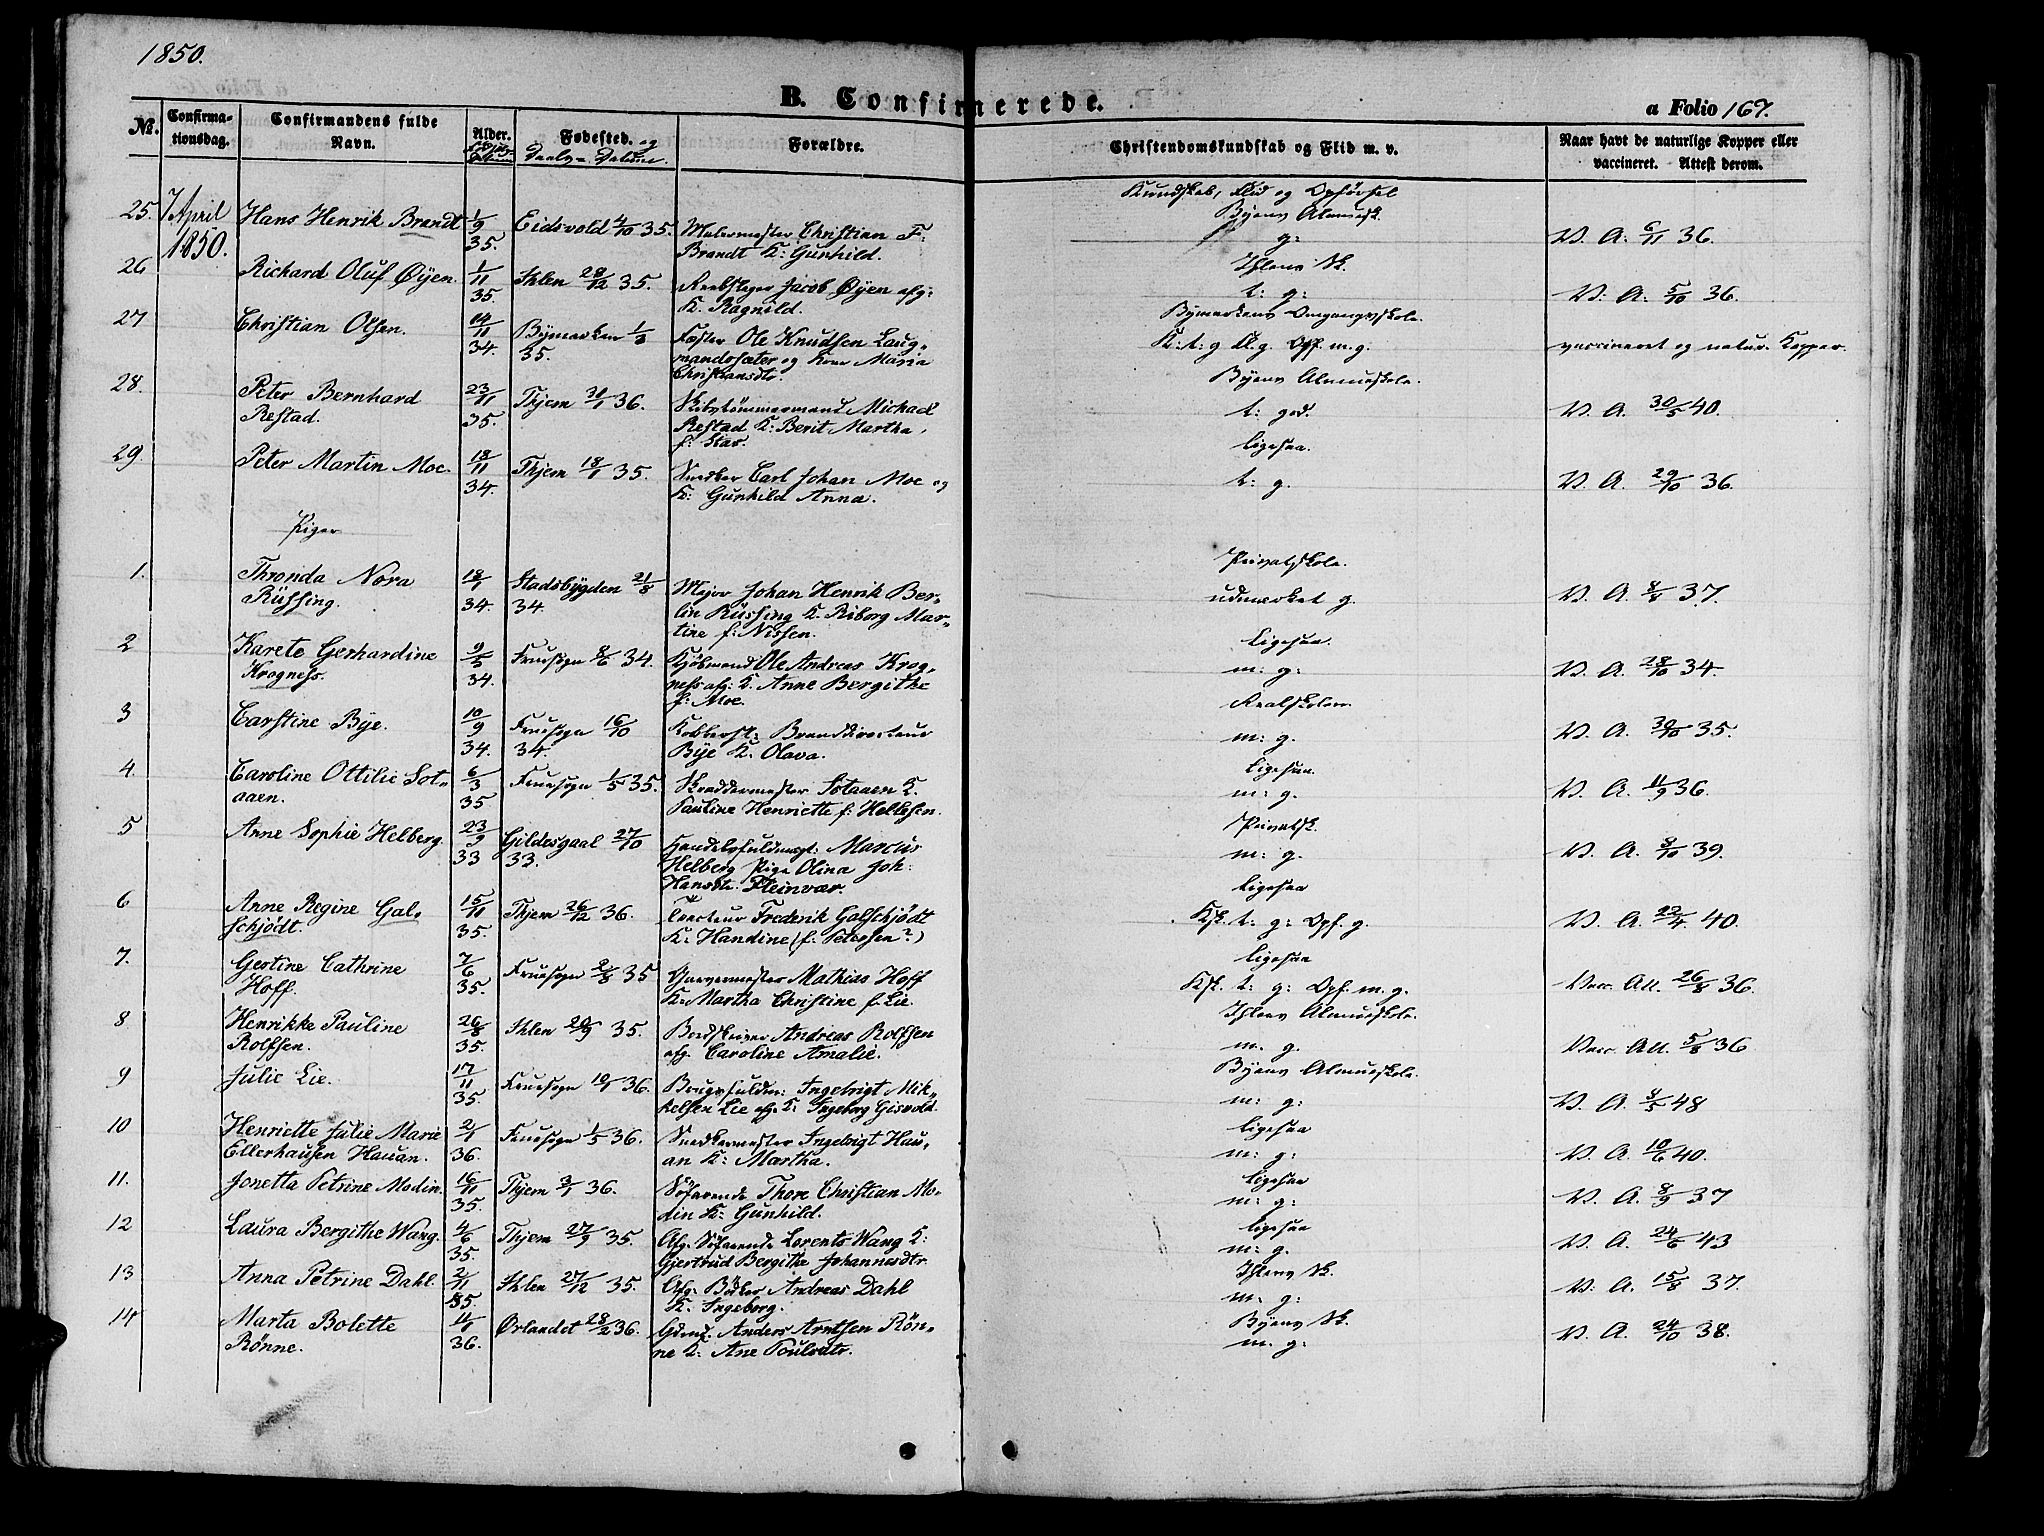 1850.
B. Confirmerede.
a Folio 167.
No. Confirma-tionsdag. Confirmandens fulde Navn. Alder. Fødested. og Daabs-Datum. Forældre. Christendomskundskab og Flid m. v. Naar havt de naturlige Kopper eller vaccineret. Attest derom.
Kundskab, Flid og Opførsel
25. 7 April 1850. Hans Henrik Brandt 1/9 35. Eidsvold 4/10 35. Malermester Christian F. Brandt K: Gunhild. Byens Almuesk. g: V. A. 6/11 36.
26 Richard Oluf Øyen. 1/11 35. Ihlen 28/12 35. Rebslager Jacob Øyen afg: K. Ragnild. Ihlens Sk. t: g: V. A. 5/10 36.
27 Christian Olsen. 14/11 34. Bymarken 1/3 35. Fæster Ole Knudsen Laug-mandssæter og Kone Maria Christiansdtr. Bymarkens Omgangsskole. K: t: g Fl. g. Opf. m. g. vaccineret og natur. Kopper.
28. Peter Bernhard Restad. 23/11 35. Thjem 31/1 36. Skibstømmermand Michael Restad K: Berit Martha f: Stav. Byens Almueskole. t: god. V. A. 30/5 40.
29. Peter Martin Moe. 18/11 34. Thjem 18/1 35. Snedker Carl Johan Moe og K: Gunhild Anna. ligesaa. t: g. V. A. 29/10 36.
Piger
1. Thronda Nora Rüssing. 18/1 34. Stadsbygden 21/8 34. Major Johan Henrik Ber-lin Rüssing K. Riborg Mar-tine f: Nissen. Privatskole. udmærket g. V. A. 8/8 37.
2 Karete Gerhardine Krogness. 9/5 34. Fruesogn 8/6 34. Kjøbmand Ole Andreas Krog-ness afg: K. Anne Bergithe f: Moe. ligesaa. m: g: V. A. 28/10 34.
3 Carstine Bye. 10/9 34. Fruesogn 16/10 34. Kobberst. Branddirecteur Bye K. Olava. Realskolen m: g. V. A. 30/10 35.
4. Caroline Ottilie Sot-aaen. 6/3 35 Fruesogn 1/5 35. Skreddermester Sotaaen K. Pauline Henriette f: Hellesen. ligesaa. m: g. V. A. 11/9 36.
5 Anne Sophie Helberg. 23/9 33 Gildesgaal 27/10 33. Handelsfuldmægt: Marcus Helberg Pige Olina Joh: Hansdtr. Fleinvær. Privatsk. m: g. V. A. 8/10 39.
6 Anne Regine Gal-schjödt. 15/11 35. Thjem 26/12 36. Frederik Galschjödt K: Handine (f: Petersen?) ligesaa Ksk. t: g: Opf. g. V. A. 22/4 40.
7. Gestine Cathrine Hoff. 7/6 35. Fruesogn 2/8 35 Garvermester Mathias Hoff K. Martha Christine f. Lie. ligesaa Ksk. t: g: Opf. m. g. Vacc. Att. 26/8 36.
8 Henrikke Pauline Rolfsen. 26/8 35. Ihlen 20/9 35. Bordskriver Andreas Rolfsen afg. Caroline Amalie. Ihlens Almueskole. m. g. Vacc. Att. 5/8 36
9 Julie Lie. 17/11 35. Fruesogn 10/1 36. Brugsfuldm: Ingebrigt Mik-kelsen Lie afg. K: Ingeborg Gisvold. Byens Almueskole. m: g: V. A. 4/5 48
10 Henriette Julie Marie Ellerhausen Hauan. 2/1 36. Fruesogn 1/5 36. Snedkermester Ingebrigt Hau-an K: Martha. ligesaa m: g: V. A. 10/6 40.
11. Jonetta Petrine Modin. 16/11 35. Thjem 3/1 36. Søfarende Thore Christian Mo-din K: Gunhild. ligesaa m: g: V. A. 8/9 37
12 Laura Bergithe Wang. 4/6 35. Thjem 27/9 35. Afg. Søfarende Lorents Wang K: Gjertrud Bergithe Johannesdtr. ligesaa m: g. V. A. 24/6 43
13 Anna Petrine Dahl. 2/11 35. Ihlen 27/12 35. Afg. Bøder Andreas Dahl K. Ingeborg. Ihlens Sk. m: g: V. A. 15/8 37.
14 Marta Bolette Rønne. 11/1 36. Ørlandet 28/2 36. Gdmd. Anders Arntsen Røn-ne K: Ane Poulsdtr. Byens Sk. m. g: V. A. 24/10 38.